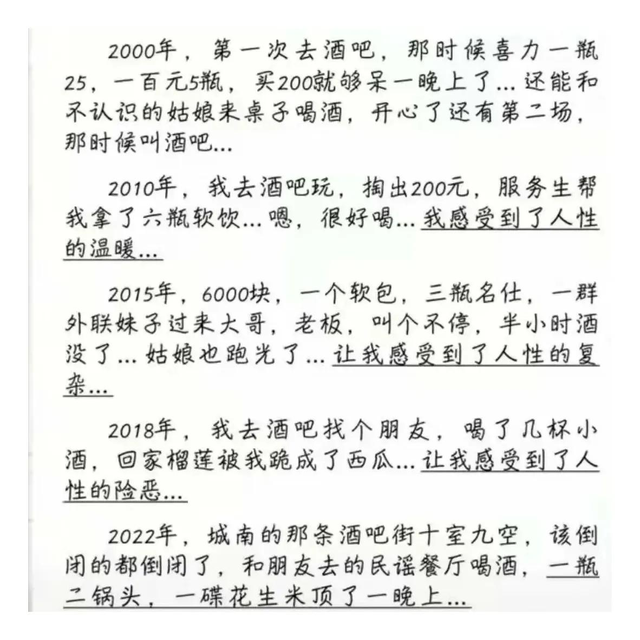 2000年，第一次去酒吧，那时候喜力一瓶
25，一百元5瓶，买200就够呆一晚上了...还能和
不认识的姑娘来桌子喝酒，开心了还有第二场，
那时候叫酒吧...
2010年，我去酒吧玩，掏出200元，服务生帮
我拿了六瓶软饮...嗯，很好喝...我感受到了人性
的温暖...
2015年，6000块，一个软包，三瓶名仕，一群
外联妹子过来大哥，老板，叫个不停，半小时酒
没了...姑娘也跑光了...让我感受到了人性的复
杂...
2018年，我去酒吧找个朋友，喝了几杯小
酒，回家榴莲被我跪成了西瓜...让我感受到了人
性的险恶...
2022年，城南的那条酒吧街十室九空，该倒
闭的都倒闭了，和朋友去的民谣餐厅喝酒，一瓶
二锅头，一碟花生米顶了一晚上...